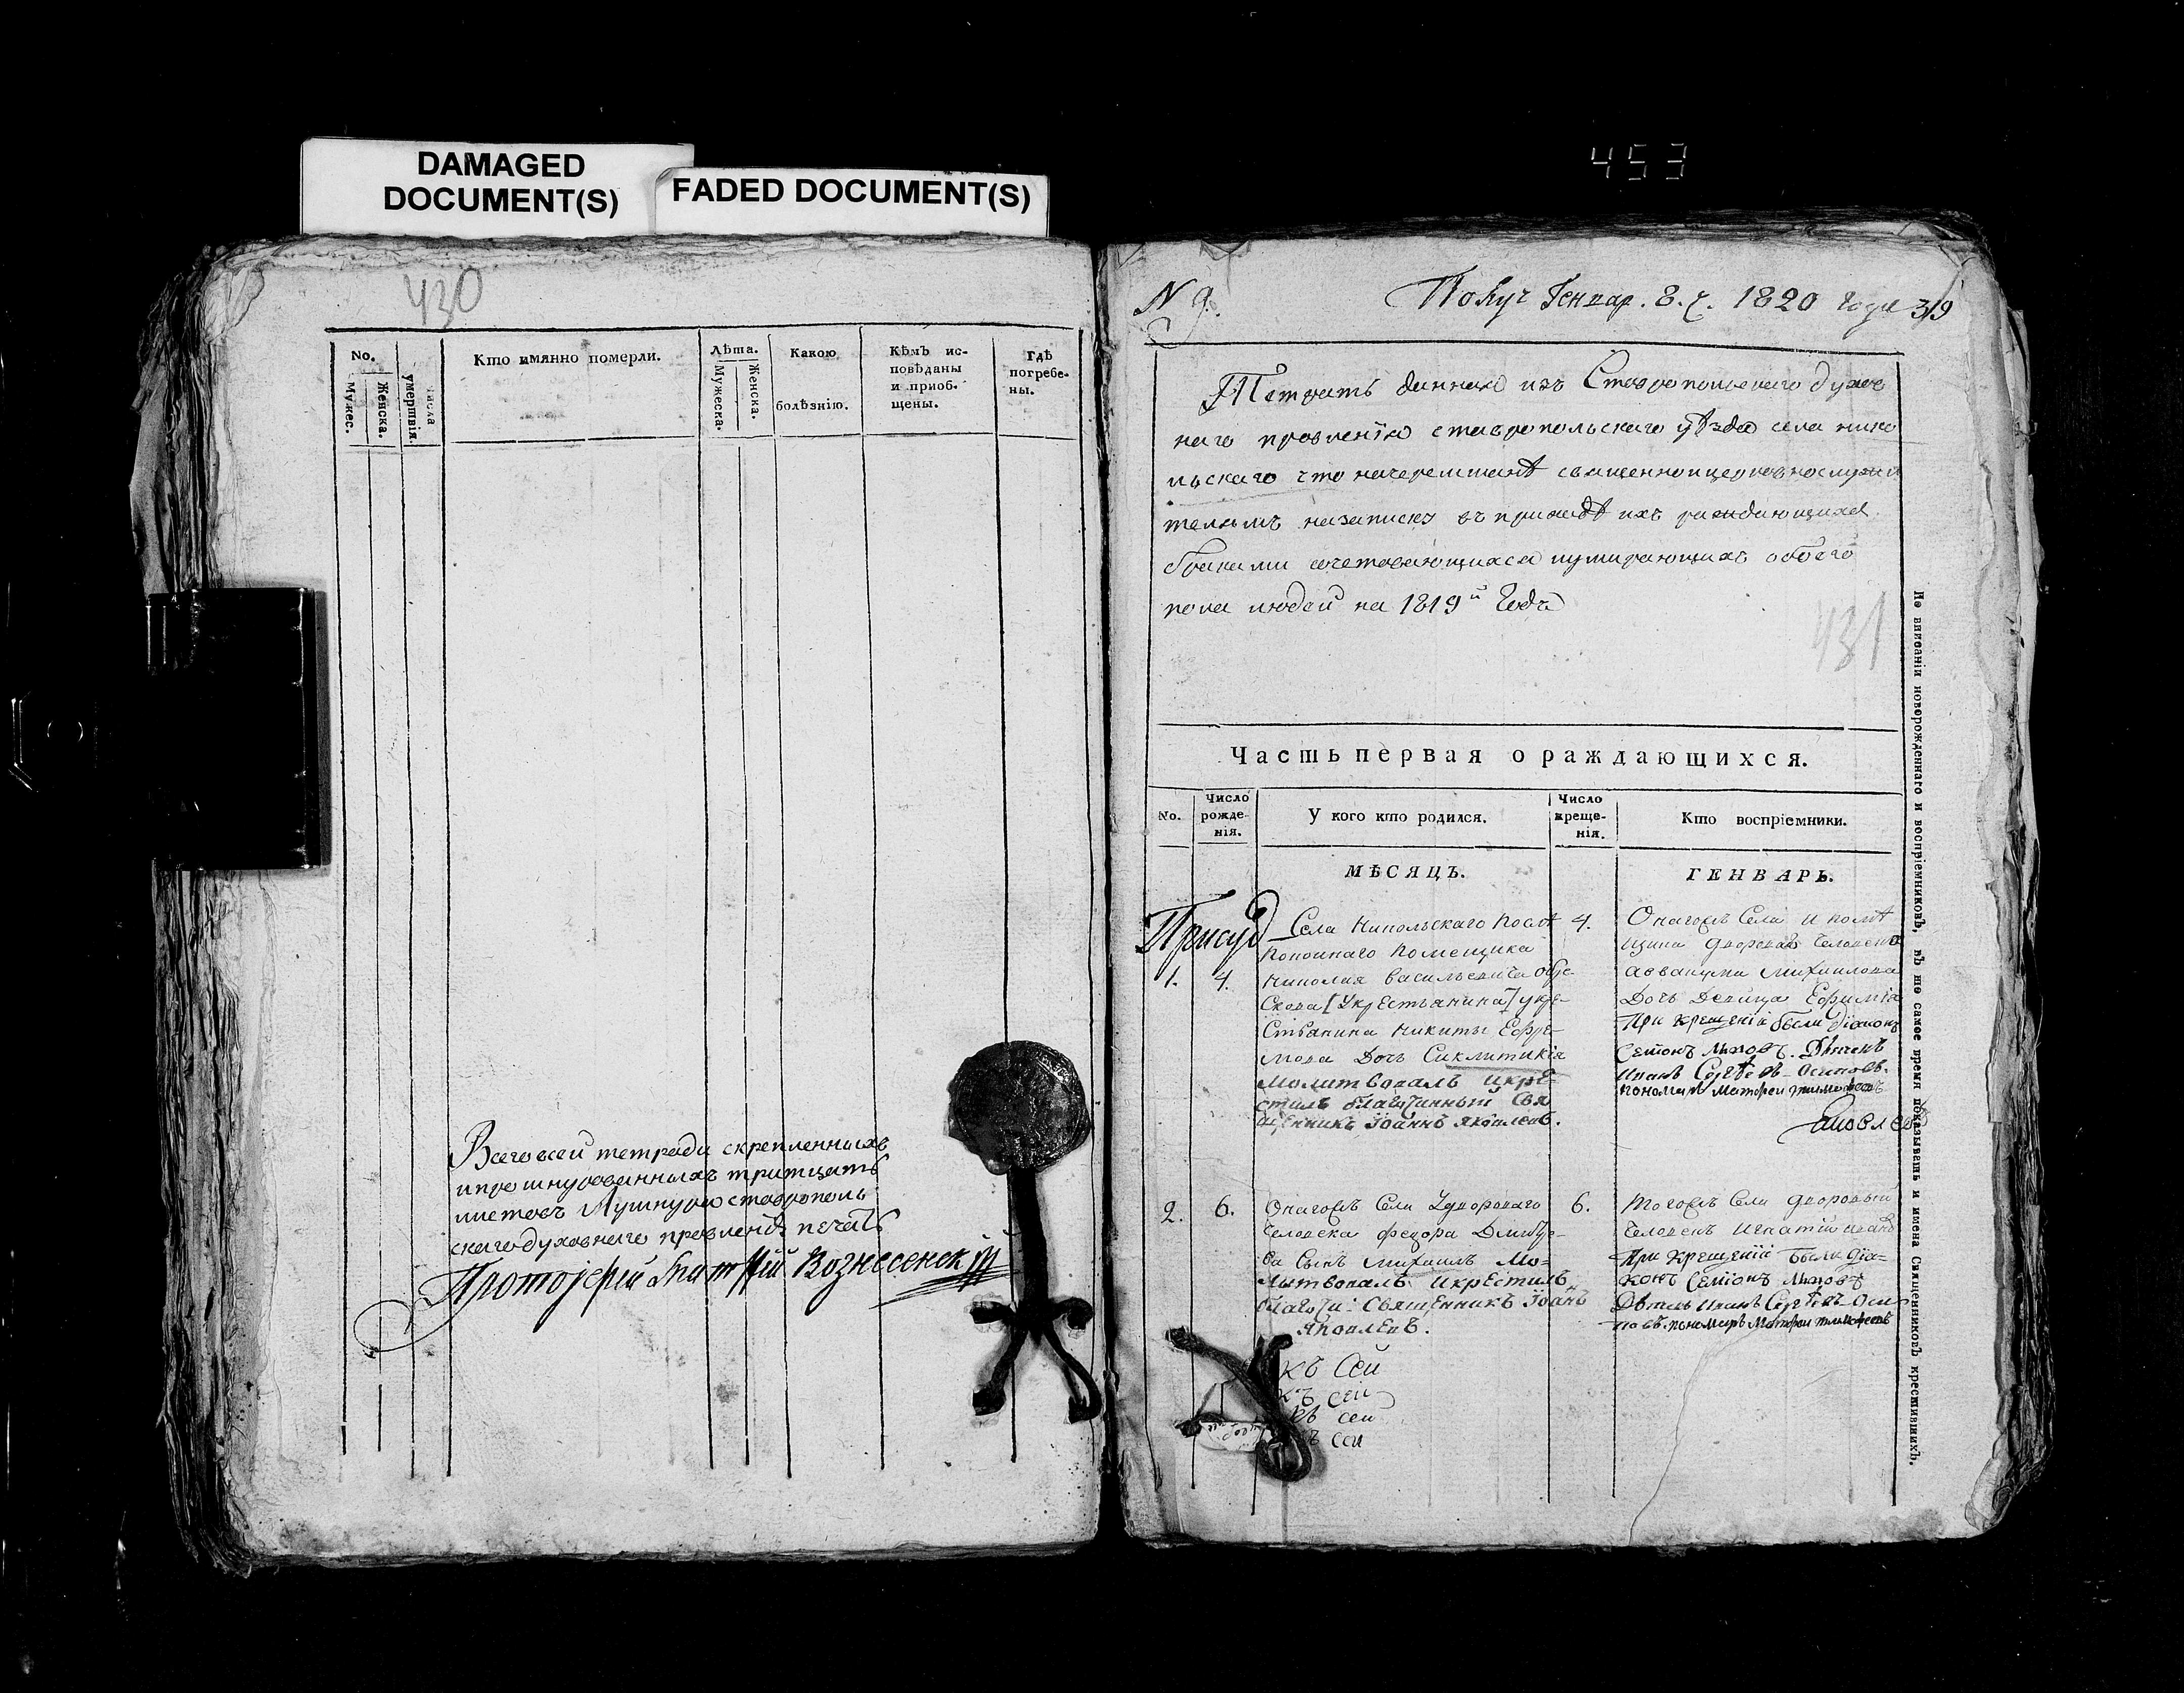 DAMAGED
DOCUMENT(S)
FADED DOCUMENT(S)
453
430
No.
Мужес.
Женска.
числа
умертвія.
Кто имянно померли.
Лѣта.
Мужеска.
Женска.
Какою
болѣзнію.
Кѣмъ ис-
повѣданы
и приоб-
щены.
Гдѣ
погребе-
ны.
Всего всей тетради скрепленныхъ
и прошнурованныхъ тритцать
листовъ
скаго духовнаго правленія печать
Протоіерей Вознесенскій
N 9.
Получ Генвар. 8. ч. 1820 года
319
Тетрать данная изъ Ставропольскаго духов
наго правленію ставропольскаго уѣзда села нико
льскаго что начеремшанѣ священноицерковнослужи
телямъ назаписку въ приходѣ ихъ раждающихся
браками сочетавающихся иумирающихъ обоего
пола людей на 1819й годъ
431
Часть первая о раждающихся.
No.
Число
рожде-
нія.
У кого кто родился.
Число
креще-
нія.
Кто воспріемники.
МѢСЯЦЪ.
ГЕНВАРЬ.
1. 4.
Села Никольскаго
покоинаго помещика
Николая Васильевича
[укрестьянина] укре-
стьянина Никиты Ефре-
мова Дочь Сиклитикія
молитвовалъ икре-
стилъ благочинный Свя
щенникъ Іоаннъ Яковлевъ.
4.
Онагожъ Села
щика дворовагъ человека
Аввакума Михаилова
Дочь Девица Ефимія
При крещеніи были діаконъ
Семіонъ
Иванъ Сергѣевъ Осиповъ
пономарь Матфеи тимофеевъ
2. 6.
Онагожъ Села удвороваго
человека федора
ва Сынъ Михаилъ Мо-
литвовалъ икрестилъ
благочи: Священникъ Іоанъ
Яковлевъ.
6.
Тогожъ Села дворовыи
человекъ Игнатіи
При крещеніи были діа-
конъ Семіонъ
Иванъ Сергѣевъ Оси-
повъ пономарь Матфеи тимофеевъ
къ сеи
къ сеи
къ сеи
сеи
По вписаніи новорожденнаго и воспріемниковъ, въ то самое время показывать и имена Священниковъ крестившихъ.